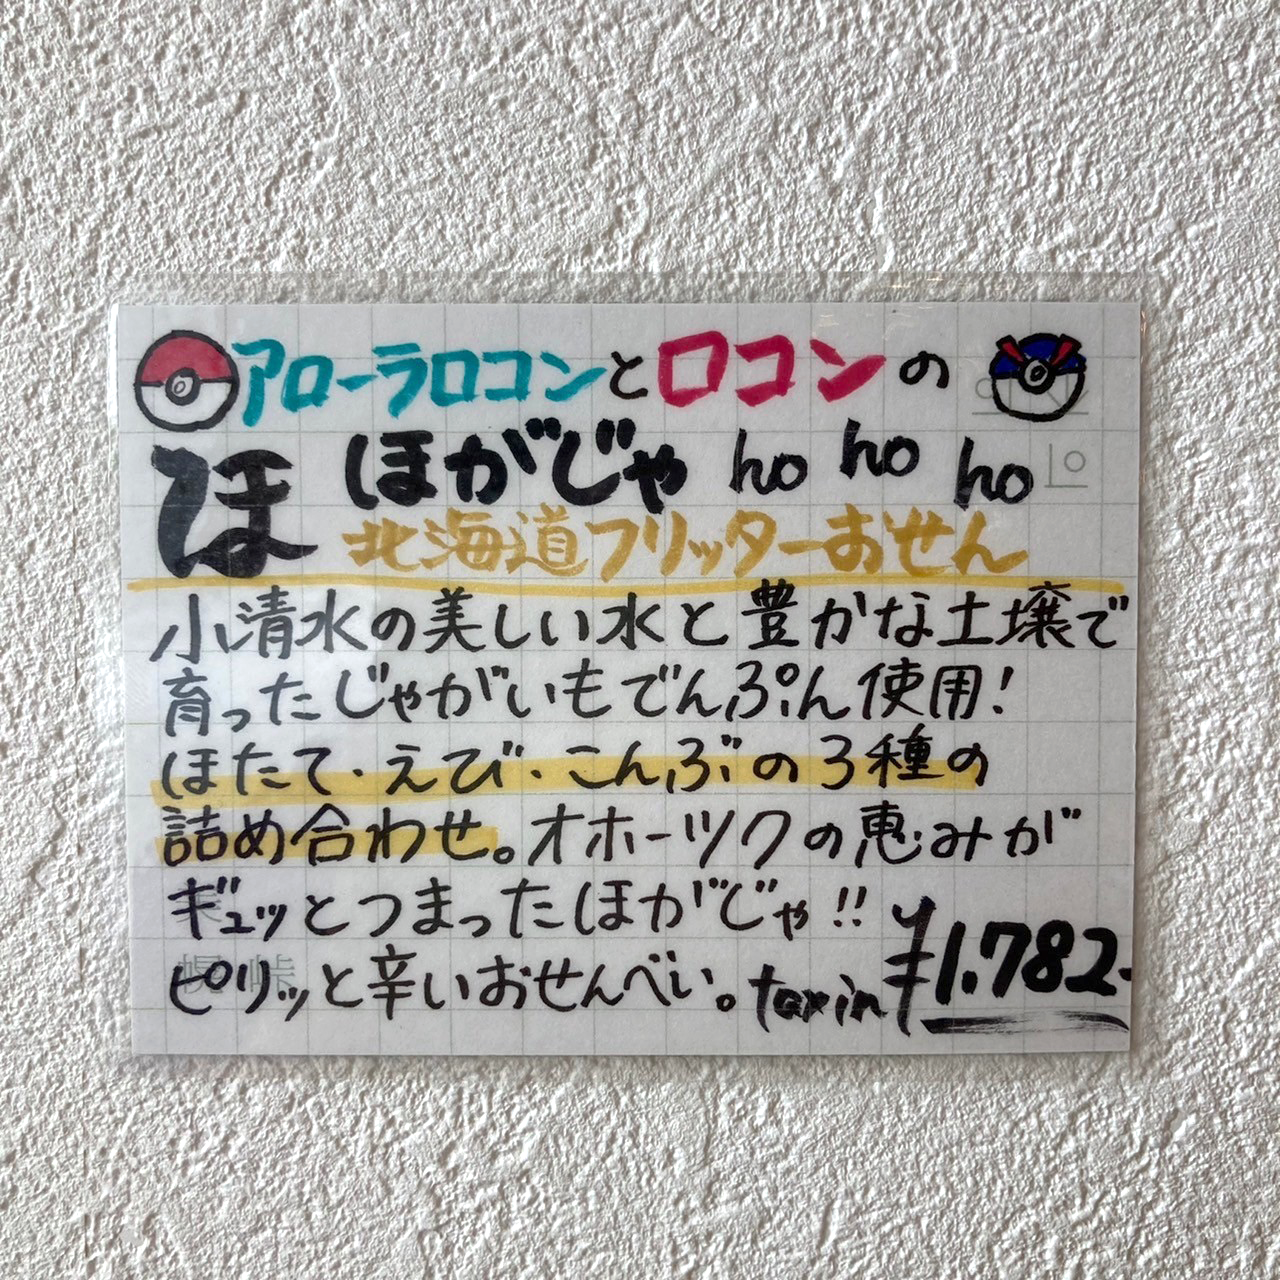 アローラロコンとロコンの
ほ ほがじゃ ho ho ho
北海道フリッターおせん
小清水の美しい水と豊かな土壌で
育ったじゃがいもでんぷん使用!
ほたて・えび・こんぶの3種の
詰め合わせ。オホーツクの恵みが
ギュッとつまったほがじゃ!!
ピリッと辛いおせんべい。tax in ¥1.782-